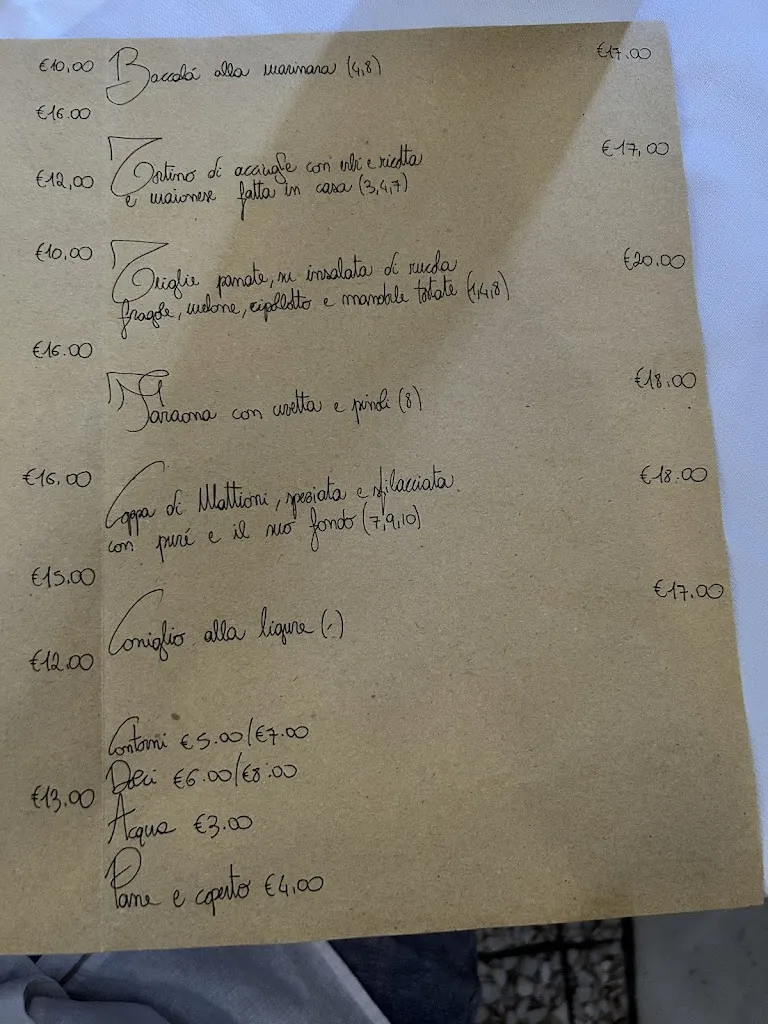 €10,00
€16.00
€12,00
€10,00
€16.00
€16.00
€15.00
€12.00
€13.00
Baccalá alla marinara (4,8) €17.00
Tortino di acciughe con erbe e ricotta €17,00
e maionese fatta in casa (3,4,7)
Triglie panate, su insalata di rucola €20.00
fragole, melone, cipollotto e mandorle tostate (1,4,8)
Faraona con uvetta e pinoli (8) €18.00
Coppa di Mattioni, speziata e sfilacciata €18.00
con puré e il suo fondo (7,9,10)
Coniglio alla ligure (-) €17.00
Contorni €5.00/€7.00
Dolci €6.00/€8.00
Acqua €3.00
Pane e coperto €4,00